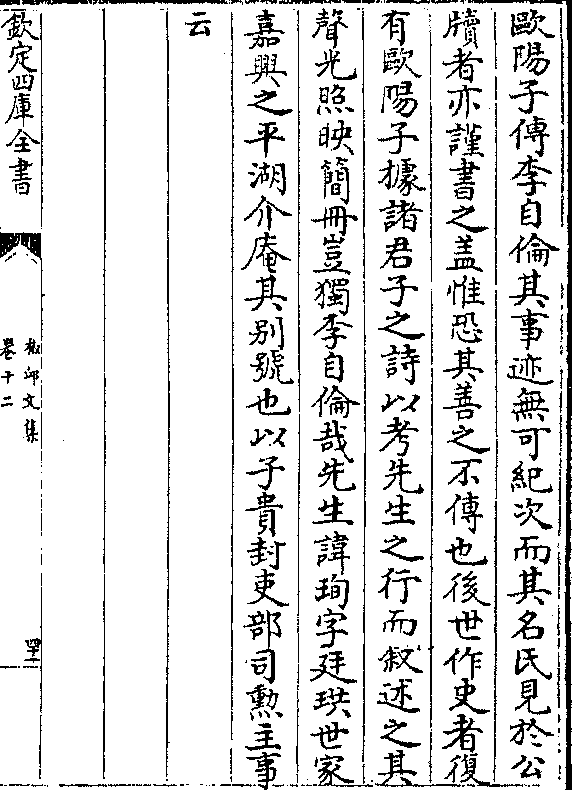 歐陽子傳李自倫其事迹無可紀次而其名氏見於公
牘者亦謹書之蓋惟恐其善之不傳也後世作史者復
有歐陽子據諸君子之詩以考先生之行而叙述之其
聲光照映簡冊豈獨李自倫哉先生諱珣字廷珙世家
嘉興之平湖介庵其别號也以子貴封吏部司勲主事
云
欽定四庫全書
文集
卷十二